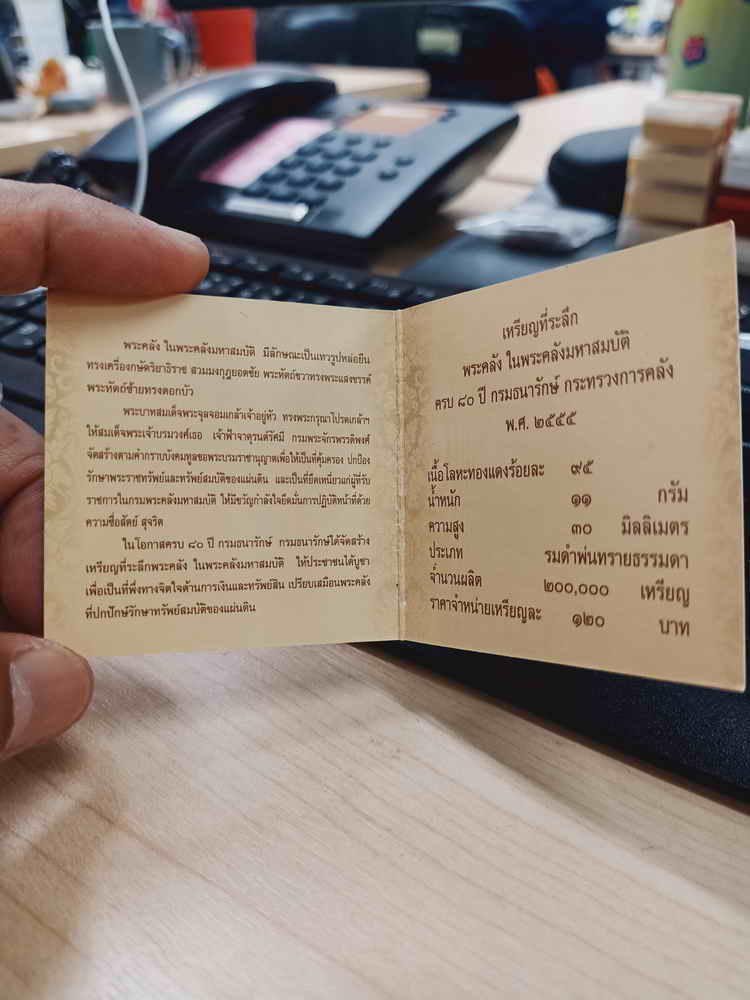 พระคลัง ในพระคลังมหาสมบัติ มีลักษณะเป็นเทวรูปหล่อยืน
ทรงเครื่องกษัตริยาธิราช สวมมงกุฎยอดชัย พระหัตถ์ขวาทรงพระแสงขรรค์
พระหัตถ์ซ้ายทรงดอกบัว
พระบาทสมเด็จพระจุลจอมเกล้าเจ้าอยู่หัว ทรงพระกรุณาโปรดเกล้าฯ
ให้สมเด็จพระเจ้าบรมวงศ์เธอ เจ้าฟ้าจาตุรนต์รัศมี กรมพระจักรพรรดิพงศ์
จัดสร้างตามคำกราบบังคมทูลขอพระบรมราชานุญาตเพื่อให้เป็นที่คุ้มครอง ปกป้อง
รักษาพระราชทรัพย์และทรัพย์สมบัติของแผ่นดิน และเป็นที่ยึดเหนี่ยวแก่ผู้ที่รับ
ราชการในกรมพระคลังมหาสมบัติ ให้มีขวัญกำลังใจยึดมั่นการปฏิบัติหน้าที่ด้วย
ความซื่อสัตย์ สุจริต
ในโอกาสครบ ๘๐ ปี กรมธนารักษ์ กรมธนารักษ์ได้จัดสร้าง
เหรียญที่ระลึกพระคลัง ในพระคลังมหาสมบัติ ให้ประชาชนได้บูชา
เพื่อเป็นที่พึ่งทางจิตใจด้านการเงินและทรัพย์สิน เปรียบเสมือนพระคลัง
ที่ปกปักษ์รักษาทรัพย์สมบัติของแผ่นดิน
เหรียญที่ระลึก
พระคลัง ในพระคลังมหาสมบัติ
ครบ ๘๐ ปี กรมธนารักษ์ กระทรวงการคลัง
พ.ศ. ๒๕๕๕
เนื้อโลหะทองแดงร้อยละ ๙๕
น้ำหนัก ๑๑ กรัม
ความสูง ๓๐ มิลลิเมตร
ประเภท รมดำพ่นทรายธรรมดา
จำนวนผลิต ๒๐๐,๐๐๐ เหรียญ
ราคาจำหน่ายเหรียญละ ๑๒๐ บาท